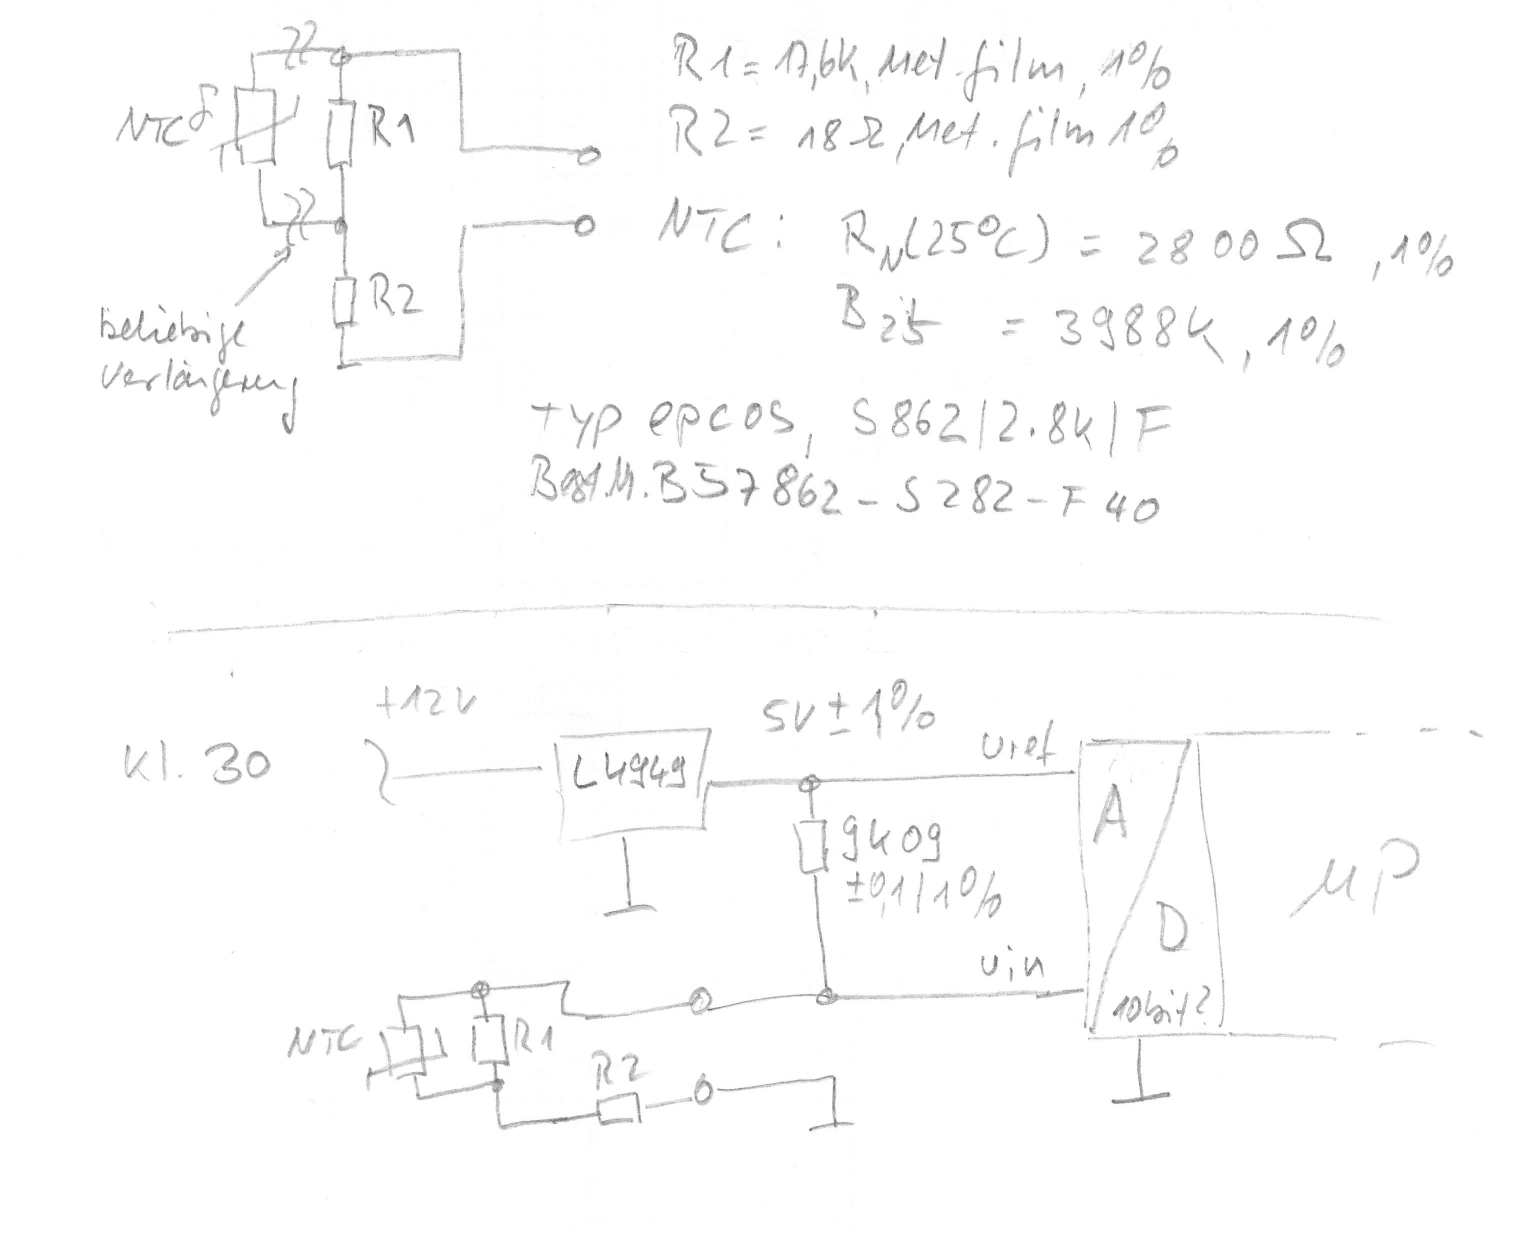 NTC
ϑ
R1
R2
beliebige
Verlängerung
R1 = 17,6k, Met.film, 1%
R2 = 18Ω, Met.film 1%
NTC: RN(25°C) = 2800Ω, 1%
B25 = 3988K, 1%
typ epcos, S862/2.8k/F
Best.N. B57862-S282-F40
Kl. 30
+12V
L4949
5V ± 1%
Uref
9k09
±0,1/1%
Uin
A
D
10bit?
µP
NTC
R1
R2